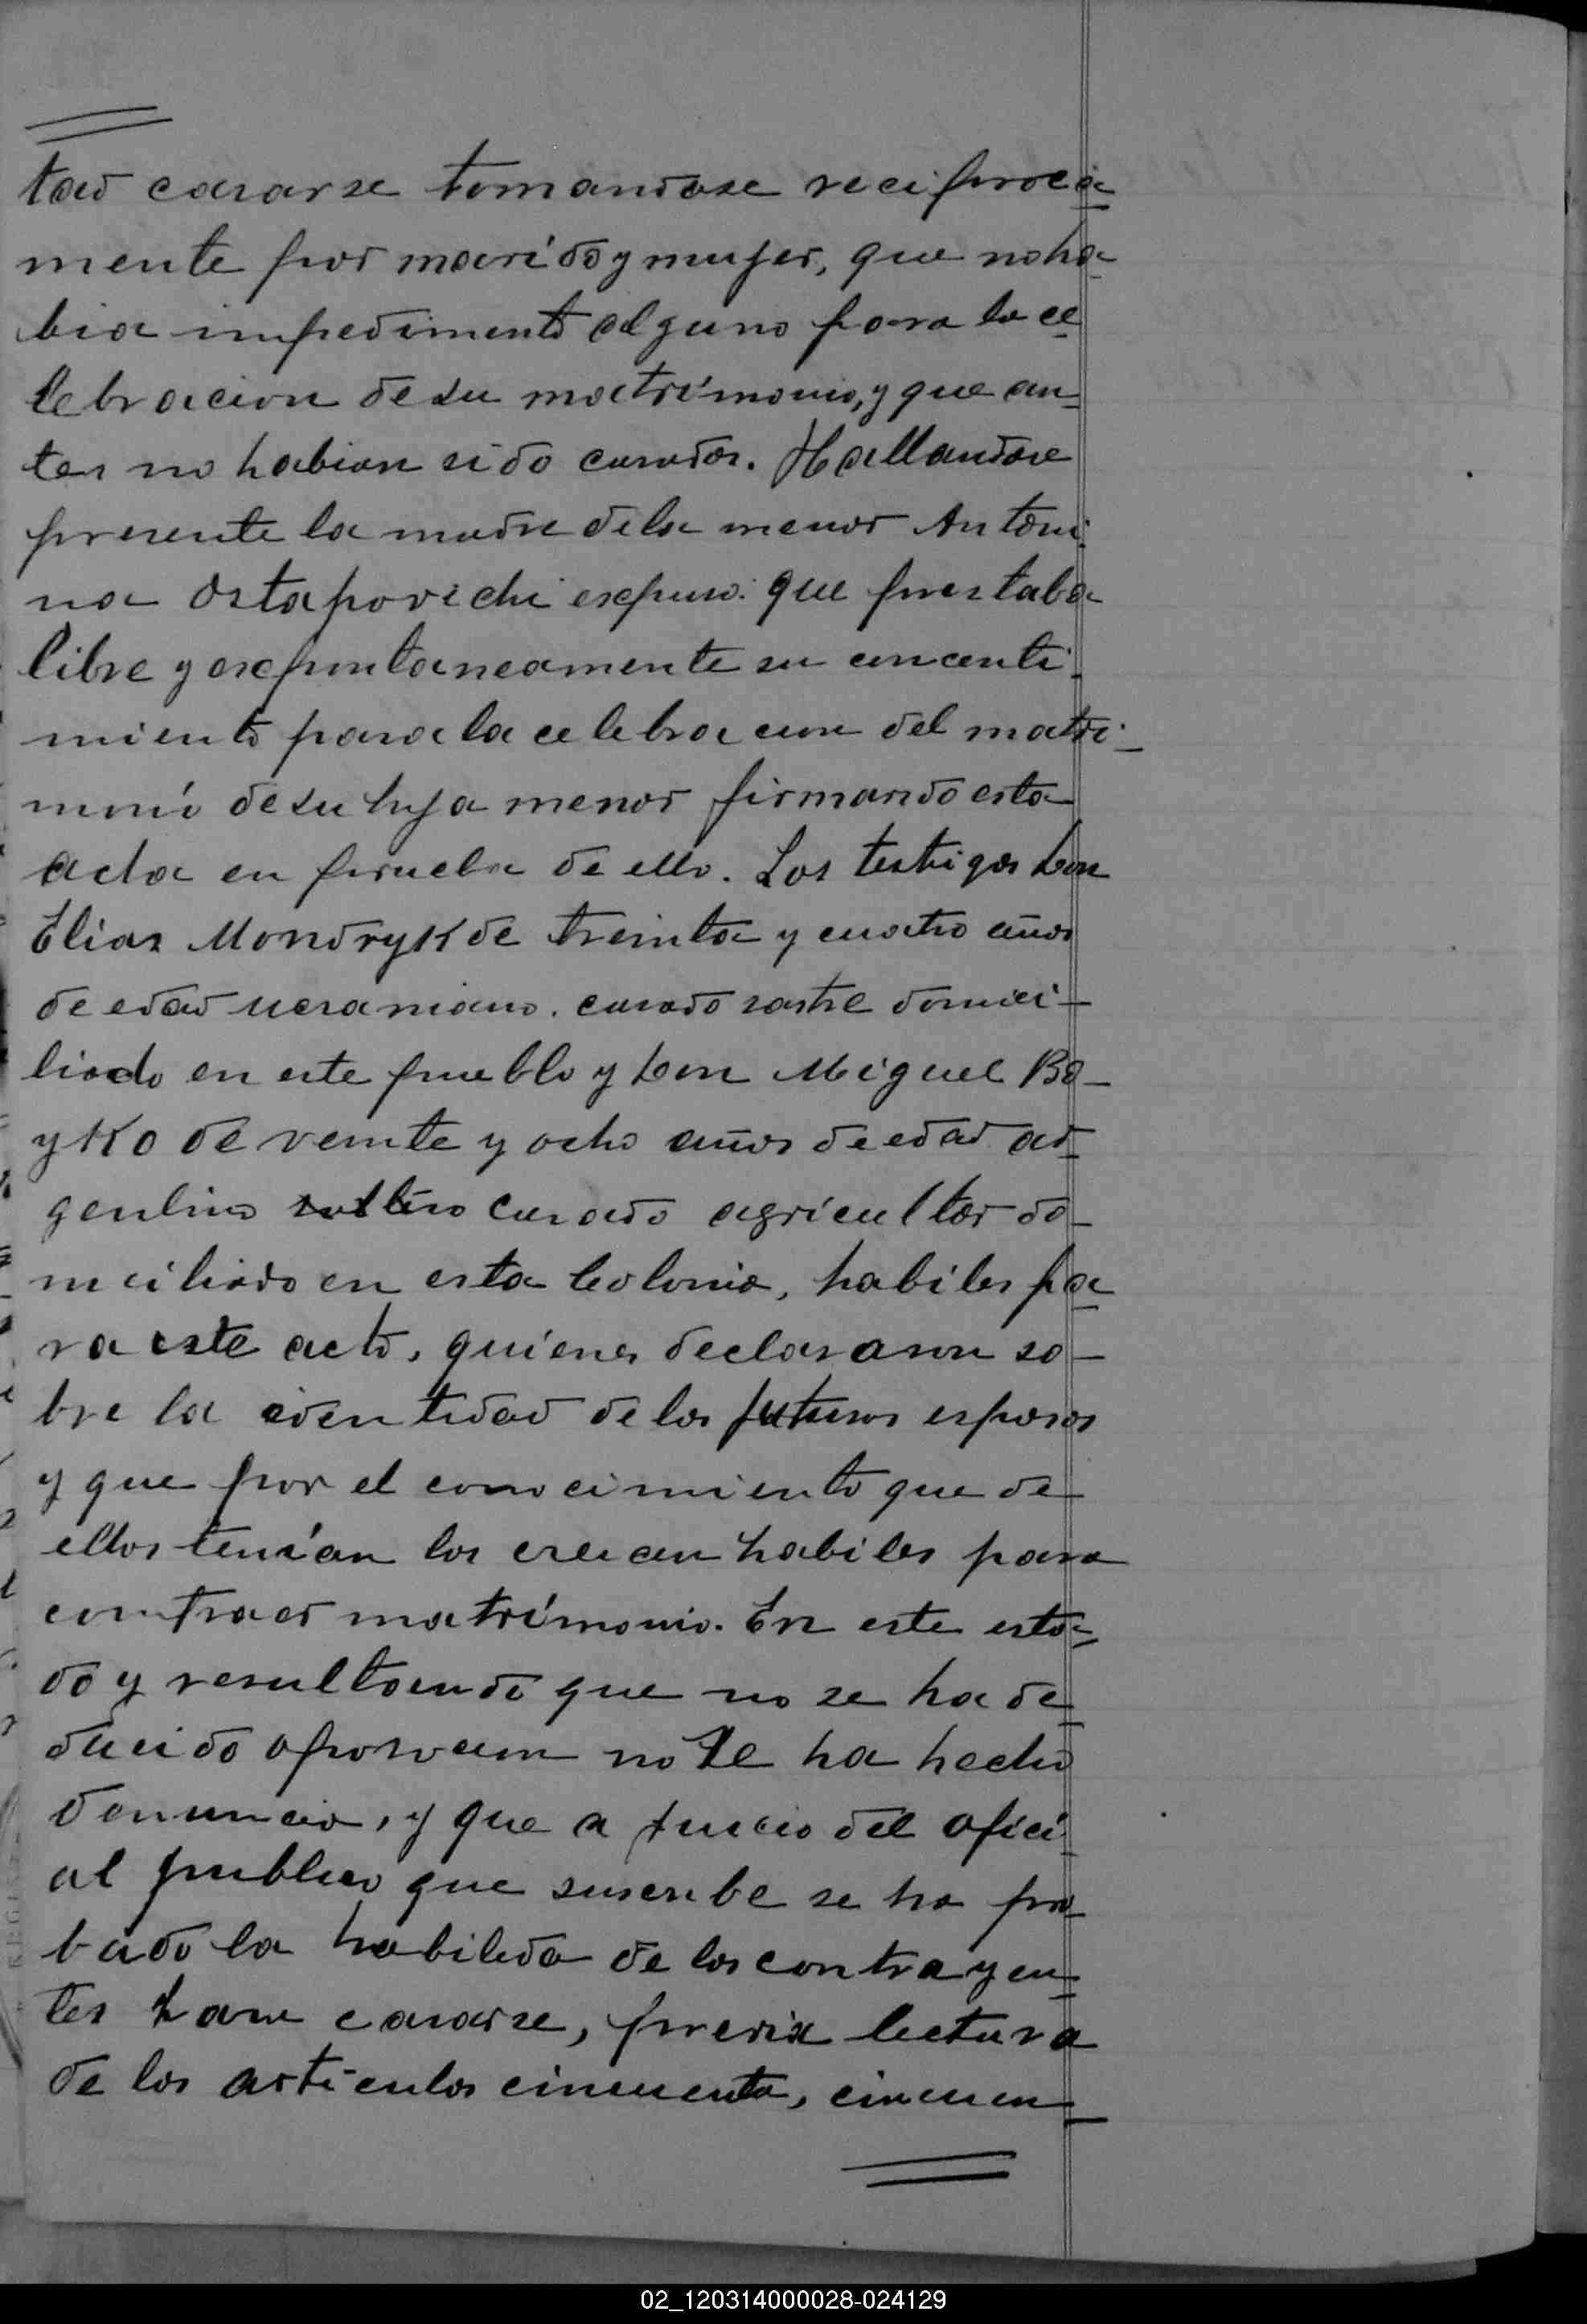 tad casarse tomandose reciproca
mente por marido y mujer, que no ha
bia impedimento alguno para la ce
lebracion de su matrimonio, y que an-
tes no habian sido casados. Hallandose
presente la madre dela menor Antoni-
na Ostapovichi expuso: que prestaba
libre y expontaneamente su concenti-
miento para la celebracion del matri-
monio de su hija menor firmando esta
acta en prueba de ello. Los testigos Don
Elias Mondryk de treinta y cuatro años
de edad ucraniano. casado sastre domici-
liado en este pueblo y Don Miguel Bo-
yko de veinte y ocho años de edad ar-
gentino soltero casado agricultor do-
miciliado en esta Colonia, habiles pa
ra este acto, quienes declararon so-
bre la identidad de los futuros esposos
y que por el conocimiento que de
ellos tenían los creian habiles para
contraer matrimonio. En este esta-
do y resultando que no se ha de
ducido oposicion no se ha hecho
denuncia, y que a juicio del ofici-
al publico que suscribe se ha pro
bado la habilida de los contrayen-
tes para casarse, previa lectura
de los articulos cincuenta, cincuen-
02_120314000028-024129